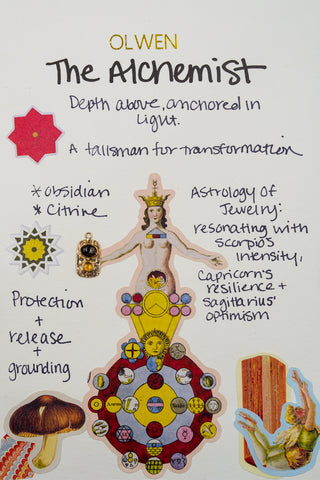 OLWEN
The Alchemist
Depth above, anchored in
Light.
A talisman for transformation
* obsidian
* Citrine
Astrology of
Jewelry:
resonating with
scorpio's
intensity,
Capricorn's
resilience +
sagittarius'
optimism
Protection
+
release
+
grounding